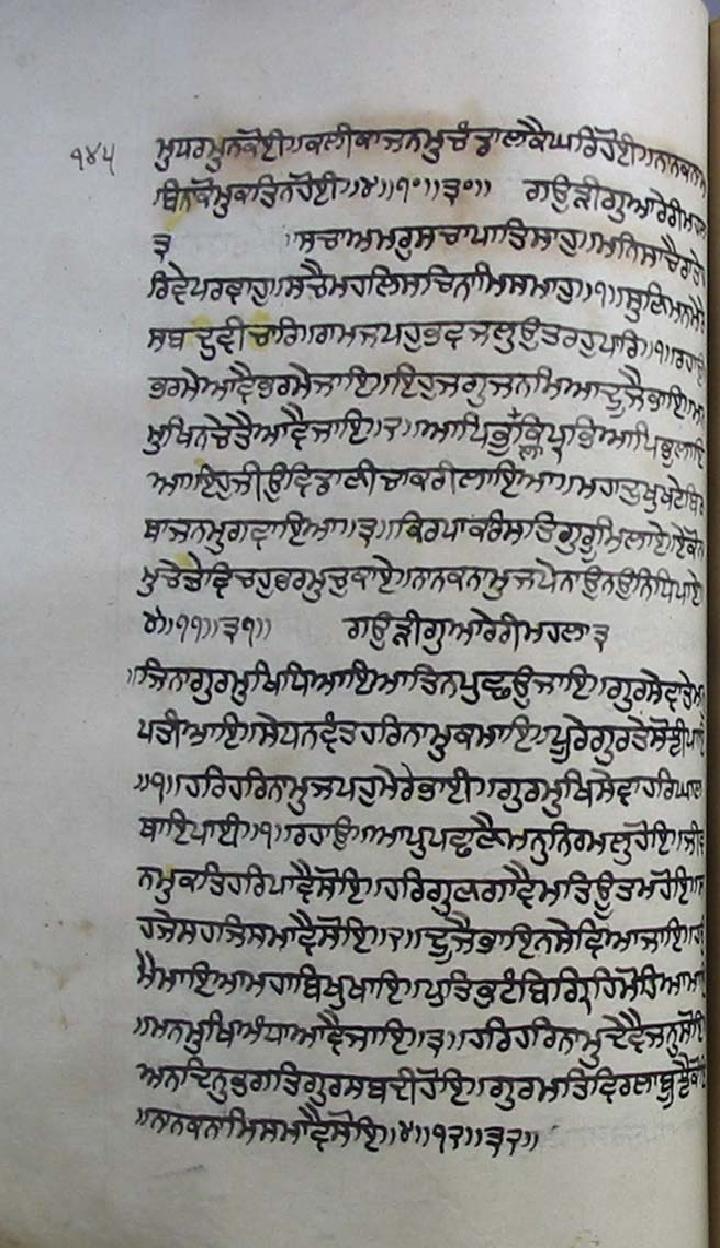 ੧੪੫
ਮੁਧਰਮੁਨਕੋਈ॥ਕਲੀਕਾਜਨਮੁਚੰਡਾਲਕੈਘਰਿਹੋਈ॥ਨਾਨਕਨਾਮ
ਬਿਨਕੋਮੁਕਤਿਨਹੋਈ॥੪॥੧੦॥੩੦॥ ਗਉੜੀਗੁਆਰੇਰੀਮਹਲਾ
੩ ॥ਸਚਾਅਮਰੁਸਚਾਪਾਤਿਸਾਹੁ॥ਮਨਿਸਾਚੈਰਾਤੇ
ਰਿਵੇਪਰਵਾਹੁ॥ਸਚੈਮਹਲਿਸਚਿਨਾਮਿਸਮਾਹੁ॥੧॥ਸੁਣਿਮਨਮੇਰੇ
ਸਬਦੁਵੀਚਾਰਿ॥ਰਾਮਜਪਹੁਭਵਜਲੁਉਤਰਹੁਪਾਰਿ॥੧॥ਰਹਾਉ
ਭਰਮੇਆਵੈਭਰਮੇਜਾਇ॥ਇਹੁਜਗੁਜਨਮਿਆਦੂਜੈਭਾਇ॥ਮਨ
ਮੁਖਿਨਚੇਤੈਆਵੈਜਾਇ॥੨॥ਆਪਿਭੁਲਾਕਿਪ੍ਰਭਿਆਪਿਭੁਲਾਇ
ਆ॥ਇਹੁਜੀਉਵਿਡਾਣੀਚਾਕਰੀਲਾਇਆ॥ਮਹਾਦੁਖੁਖਟੇਬਿਰ
ਥਾਜਨਮੁਗਵਾਇਆ॥੩॥ਕਿਰਪਾਕਰਿਸਤਿਗੁਰੂਮਿਲਾਏ॥ਏਕੋਨਾ
ਮੁਚੇਤੇਵਿਚਹੁਭਰਮੁਚੁਕਾਏ॥ਨਾਨਕਨਾਮੁਜਪੇਨਾਉਨਉਨਿਧਿਪਾਏ
੪॥੧੧॥੩੧॥ ਗਉੜੀਗੁਆਰੇਰੀਮਹਲਾ੩
॥ਜਿਨਾਗੁਰਮੁਖਿਧਿਆਇਆਤਿਨਪੂਛਉਜਾਇ॥ਗੁਰਸੇਵਾਤੇਮਨੁ
ਪਤੀਆਇ॥ਸੇਧਨਵੰਤਹਰਿਨਾਮੁਕਮਾਇ॥ਪੂਰੇਗੁਰਤੇਸੋਝੀਪਾਇ
॥੧॥ਹਰਿਹਰਿਨਾਮੁਜਪਹੁਮੇਰੇਭਾਈ॥ਗੁਰਮੁਖਿਸੇਵਾਹਰਿਘਾਲ
ਥਾਇਪਾਈ॥੧॥ਰਹਾਉ॥ਆਪੁਪਛਾਣੈਮਨੁਨਿਰਮਲੁਹੋਇ॥ਜੀਵ
ਨਮੁਕਤਿਹਰਿਪਾਵੈਸੋਇ॥ਹਰਿਗੁਣਗਾਵੈਮਤਿਊਤਮਹੋਇ॥ਸ
ਹਜੇਸਹਜਿਸਮਾਵੈਸੋਇ॥੨॥ਦੂਜੈਭਾਇਨਸੇਵਿਆਜਾਇ॥ਹਉ
ਮੈਮਾਇਆਮਹਾਬਿਖੁਖਾਇ॥ਪੁਤਿਕੁਟੰਬਿਗ੍ਰਿਹਿਮੋਹਿਆਮਾਇ
॥ਮਨਮੁਖਿਅੰਧਾਆਵੈਜਾਇ॥੩॥ਹਰਿਹਰਿਨਾਮੁਦੇਵੈਜਨੁਸੋਇ
ਅਨਦਿਨੁਭਗਤਿਗੁਰਸਬਦੀਹੋਇ॥ਗੁਰਮਤਿਵਿਰਲਾਬੂਝੈਕੋਇ
॥ਨਾਨਕਨਾਮਿਸਮਾਵੈਸੋਇ॥੪॥੧੨॥੩੨॥